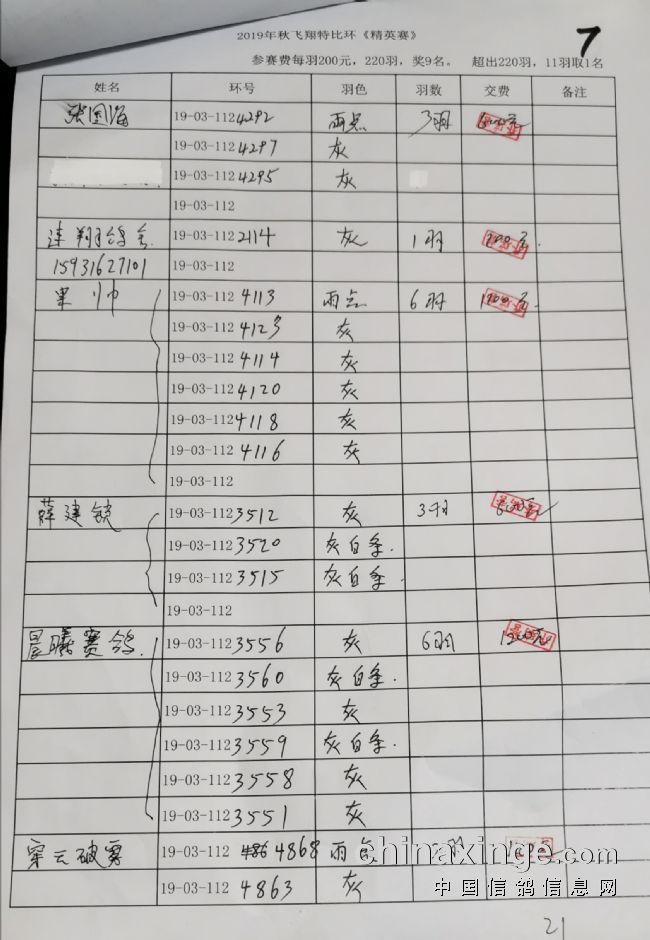 7
2019年秋飞翔特比环《精英赛》
参赛费每羽200元，220羽，奖9名。 超出220羽，11羽取1名
姓名 环号 羽色 羽数 交费 备注
张国海 19-03-112 4292 雨点 3羽
19-03-112 4297 灰
19-03-112 4295 灰
19-03-112
连翔鸽舍 19-03-112 2114 灰 1羽
15931627101 19-03-112
果帅 19-03-112 4113 雨点 6羽
19-03-112 4123 灰
19-03-112 4114 灰
19-03-112 4120 灰
19-03-112 4118 灰
19-03-112 4116 灰
19-03-112
薛建锁 19-03-112 3512 灰 3羽
19-03-112 3520 灰白条.
19-03-112 3515 灰白条.
19-03-112
晨曦赛鸽. 19-03-112 3556 灰 6羽 1200元
19-03-112 3560 灰白条.
19-03-112 3553 灰
19-03-112 3559 灰白条.
19-03-112 3558 灰
19-03-112 3551 灰
穿云破雾 19-03-112 4868 雨点
19-03-112 4863 灰
chinaxinge.com
中国信鸽信息网
21